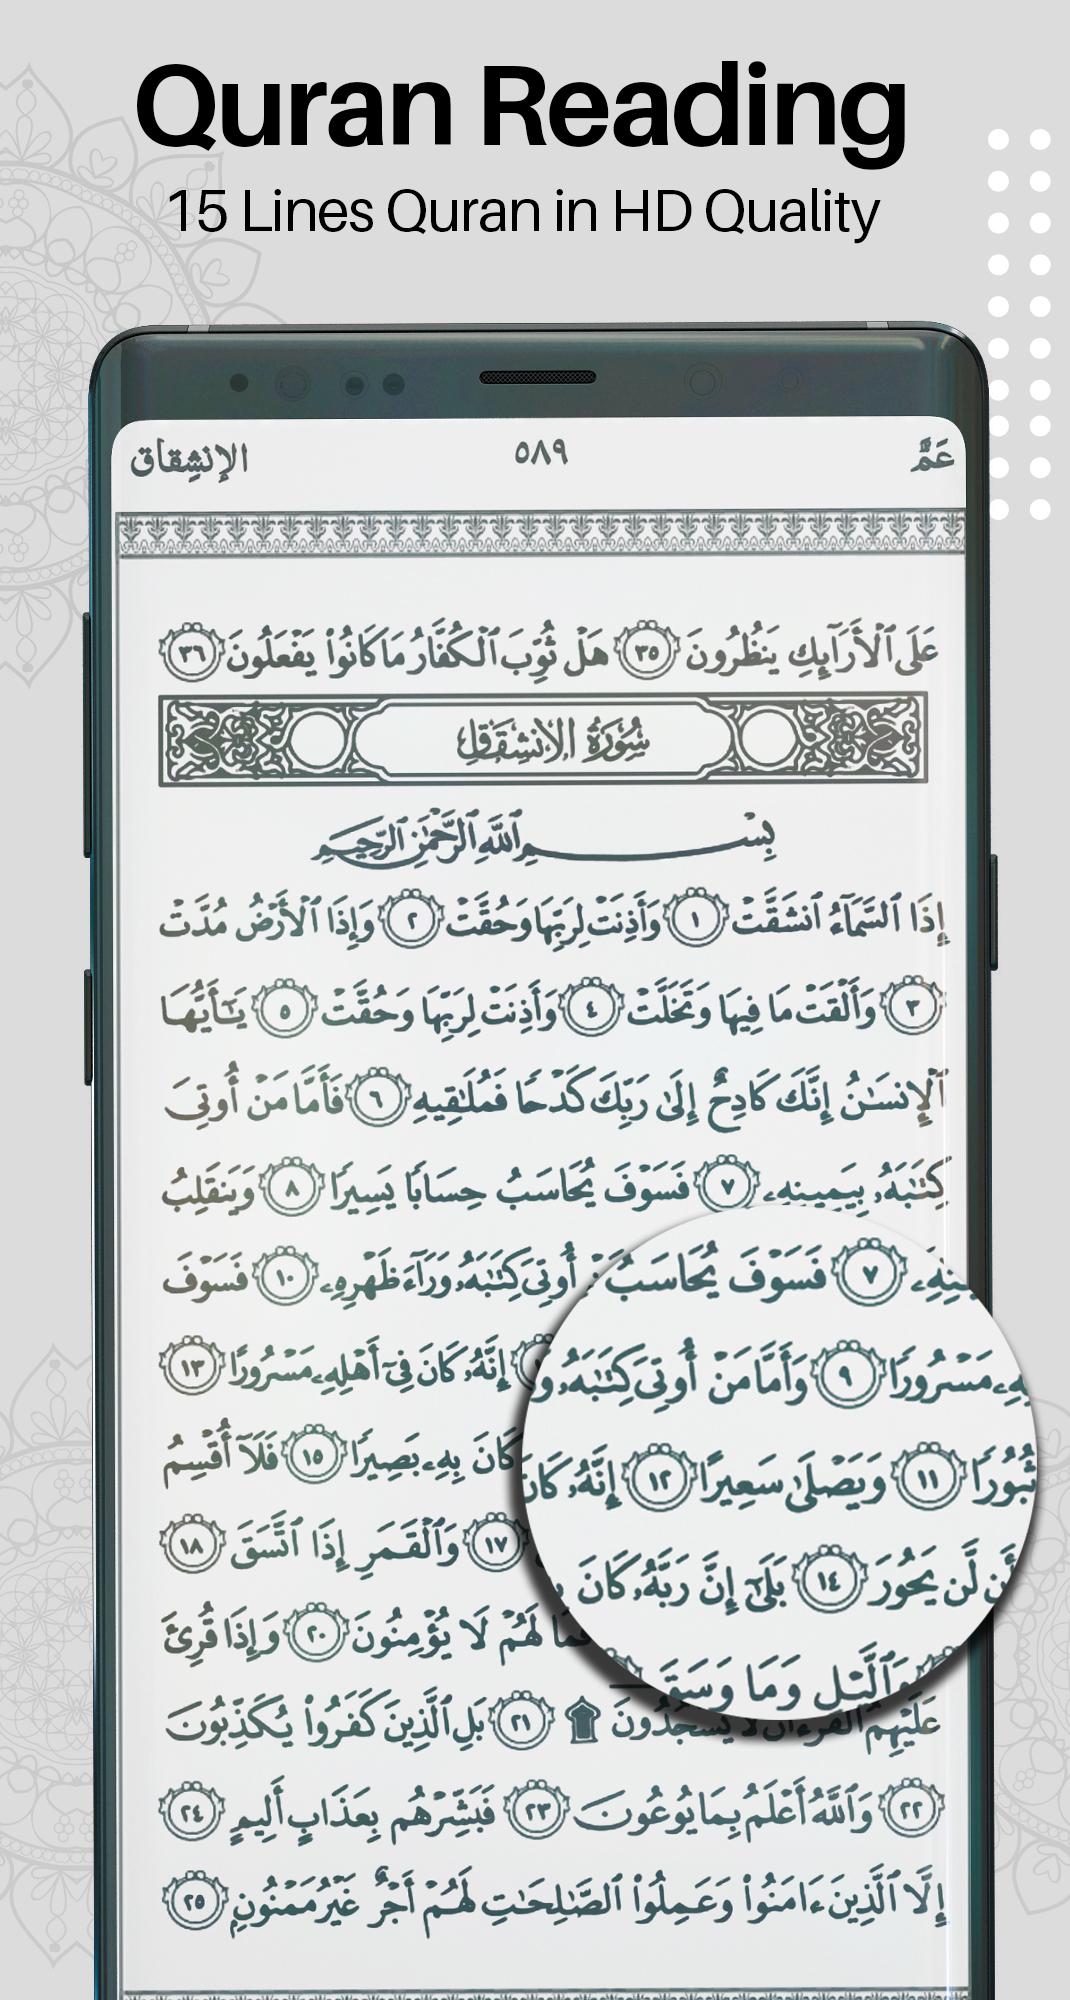 Quran Reading
15 Lines Quran in HD Quality
عَمَّ ٥٨٩ الإنشِقاق
عَلَى ٱلْأَرَآئِكِ يَنظُرُونَ ٣٥ هَلْ ثُوِّبَ ٱلْكُفَّارُ مَا كَانُوا۟ يَفْعَلُونَ ٣٦
سُورَةُ الانشقاق
بِسْمِ ٱللَّهِ ٱلرَّحْمَٰنِ ٱلرَّحِيمِ
إِذَا ٱلسَّمَآءُ ٱنشَقَّتْ ١ وَأَذِنَتْ لِرَبِّهَا وَحُقَّتْ ٢ وَإِذَا ٱلْأَرْضُ مُدَّتْ
٣ وَأَلْقَتْ مَا فِيهَا وَتَخَلَّتْ ٤ وَأَذِنَتْ لِرَبِّهَا وَحُقَّتْ ٥ يَٰٓأَيُّهَا
ٱلْإِنسَٰنُ إِنَّكَ كَادِحٌ إِلَىٰ رَبِّكَ كَدْحًا فَمُلَٰقِيهِ ٦ فَأَمَّا مَنْ أُوتِىَ
كِتَٰبَهُۥ بِيَمِينِهِۦ ٧ فَسَوْفَ يُحَاسَبُ حِسَابًا يَسِيرًا ٨ وَيَنقَلِبُ
أُوتِىَ كِتَٰبَهُۥ وَرَآءَ ظَهْرِهِۦ ١٠ فَسَوْفَ
إِنَّهُۥ كَانَ فِىٓ أَهْلِهِۦ مَسْرُورًا ١٣
كَانَ بِهِۦ بَصِيرًا ١٥ فَلَآ أُقْسِمُ
١٧ وَٱلْقَمَرِ إِذَا ٱتَّسَقَ ١٨
فَمَا لَهُمْ لَا يُؤْمِنُونَ ٢٠ وَإِذَا قُرِئَ
عَلَيْهِمُ ٱلْقُرْءَانُ لَا يَسْجُدُونَ ۩ ٢١ بَلِ ٱلَّذِينَ كَفَرُوا۟ يُكَذِّبُونَ
٢٢ وَٱللَّهُ أَعْلَمُ بِمَا يُوعُونَ ٢٣ فَبَشِّرْهُم بِعَذَابٍ أَلِيمٍ ٢٤
إِلَّا ٱلَّذِينَ ءَامَنُوا۟ وَعَمِلُوا۟ ٱلصَّٰلِحَٰتِ لَهُمْ أَجْرٌ غَيْرُ مَمْنُونٍۭ ٢٥
٧ فَسَوْفَ يُحَاسَبُ
مَسْرُورًا ٩ وَأَمَّا مَنْ أُوتِىَ كِتَٰبَهُۥ
ثُبُورًا ١١ وَيَصْلَىٰ سَعِيرًا ١٢ إِنَّهُۥ كَانَ
أَن لَّن يَحُورَ ١٤ بَلَىٰٓ إِنَّ رَبَّهُۥ كَانَ
وَٱلَّيْلِ وَمَا وَسَقَ